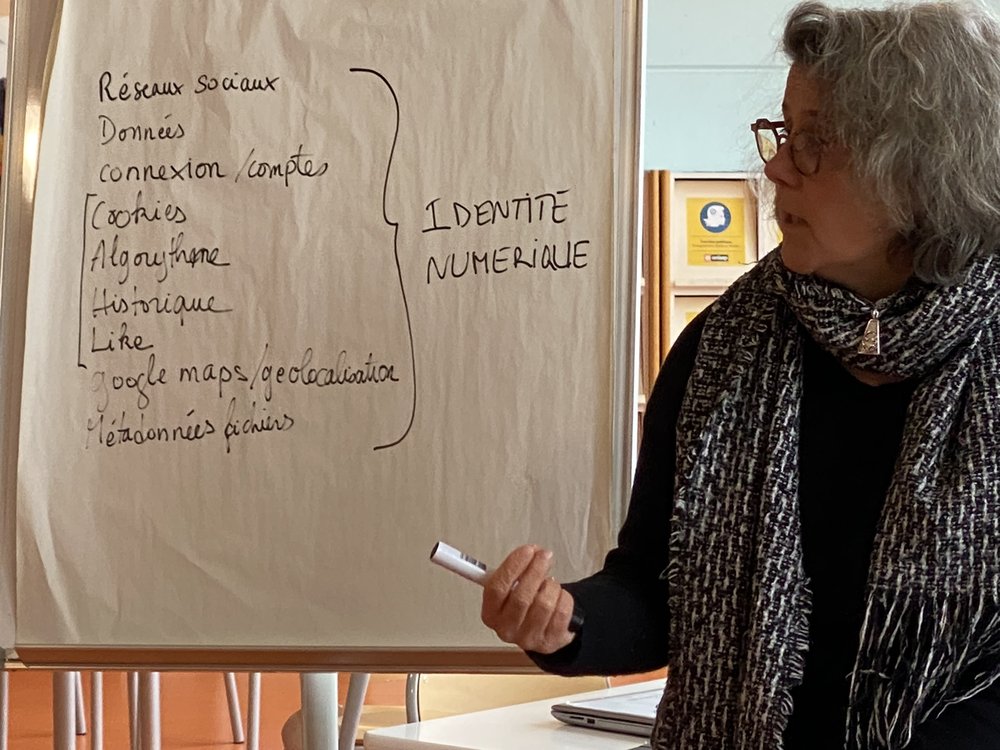 Réseaux sociaux
Données
connexion/comptes
Cookies
Algorythme
Historique
Like
google maps/géolocalisation
Métadonnées fichiers
IDENTITÉ
NUMERIQUE